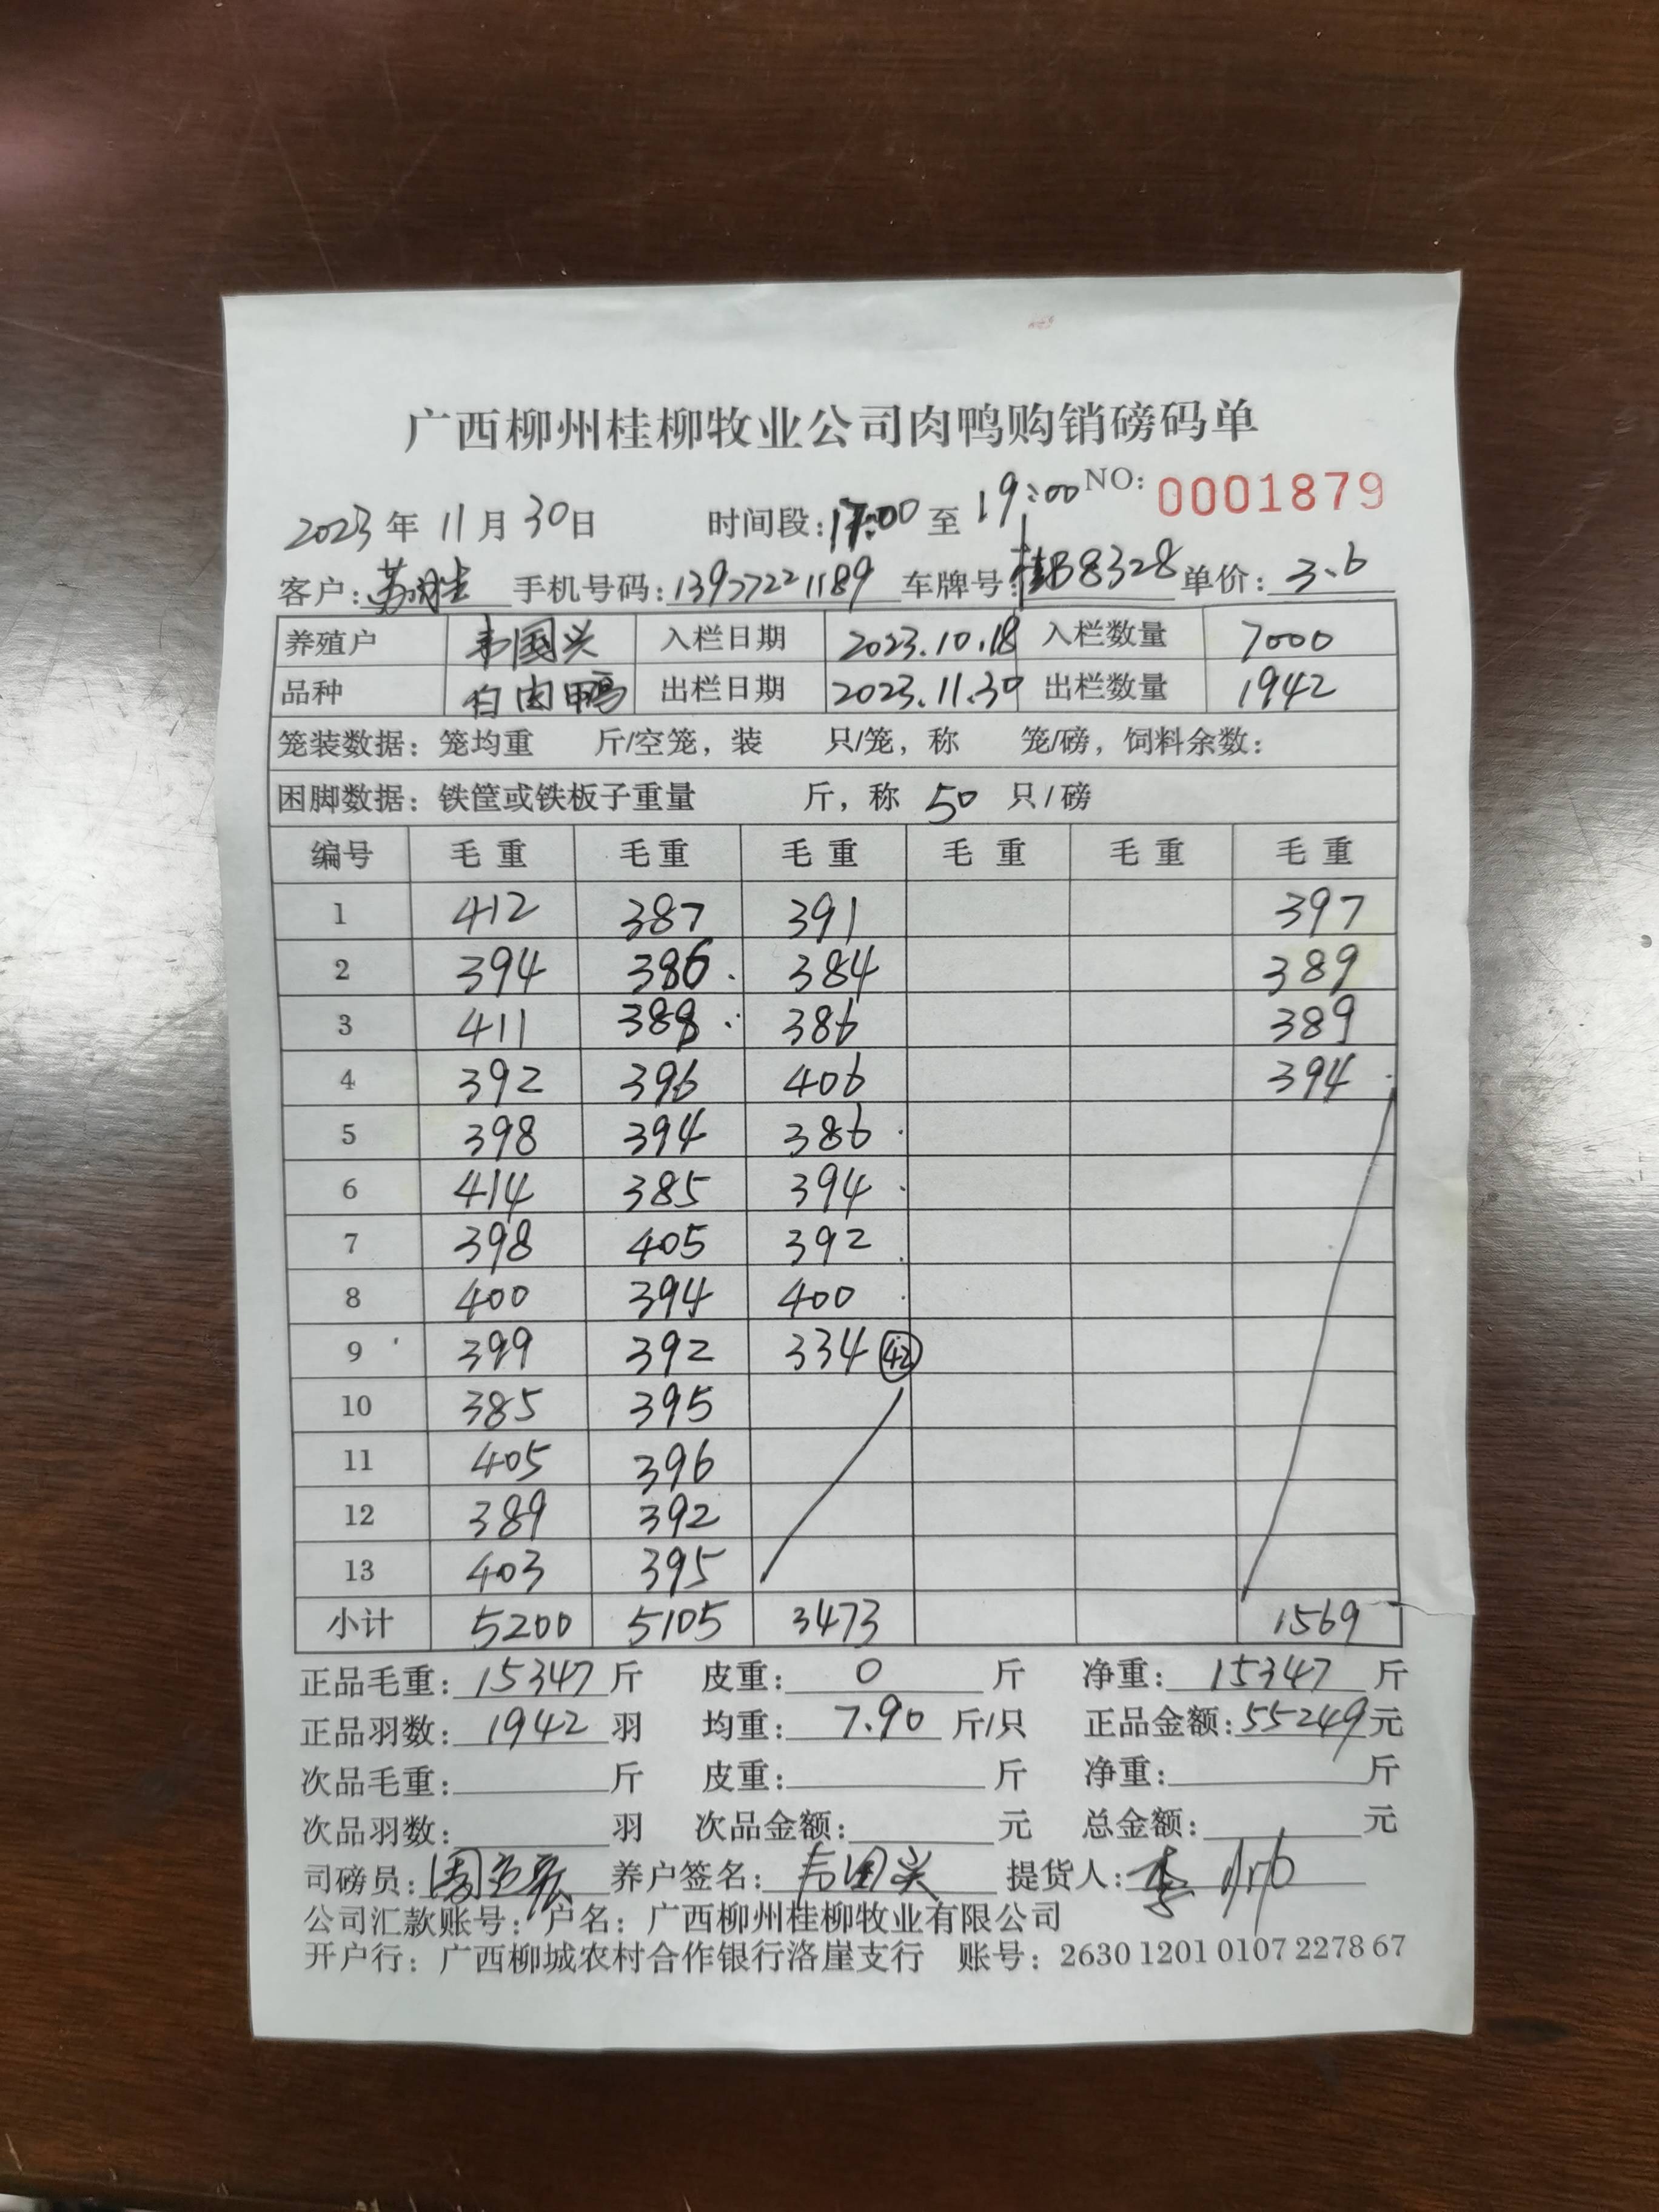 广西柳州桂柳牧业公司肉鸭购销磅码单
NO: 0001879
2023年11月30日 时间段:17:00至19:00
客户:苏胜 手机号码:13977221189 车牌号:桂B8328 单价:3.6
养殖户 韦国兴 入栏日期 2023.10.18 入栏数量 7000
品种 白肉鸭 出栏日期 2023.11.30 出栏数量 1942
笼装数据:笼均重 斤/空笼,装 只/笼,称 笼/磅,饲料余数:
困脚数据:铁筐或铁板子重量 斤,称 50 只/磅
编号 毛重 毛重 毛重 毛重 毛重 毛重
1 412 387 391 397
2 394 386 384 389
3 411 388 386 389
4 392 396 406 394
5 398 394 386
6 414 385 394
7 398 405 392
8 400 394 400
9 399 392 334 42
10 385 395
11 405 396
12 389 392
13 403 395
小计 5200 5105 3473 1569
正品毛重:15347斤 皮重:0斤 净重:15347斤
正品羽数:1942羽 均重:7.90斤/只 正品金额:55249元
次品毛重: 斤 皮重: 斤 净重: 斤
次品羽数: 羽 次品金额: 元 总金额: 元
司磅员: 养户签名:韦国兴 提货人:李
公司汇款账号:户名:广西柳州桂柳牧业有限公司
开户行:广西柳城农村合作银行洛崖支行 账号:2630 1201 0107 2278 67